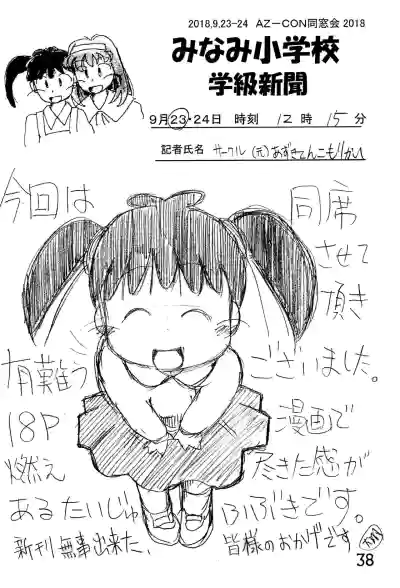 2018,9,23-24 AZ－CON同窓会 2018
みなみ小学校
学級新聞
9月23・24日 時刻 12時 15分
記者氏名 サークル (元)あずきてんこもりかい
今回は 同席
させて
頂き
有難う ございました。
18P 漫画で
燃え 尽きた感が
ある ぶきです。
新刊無事出来た、 皆様のおかげです
38